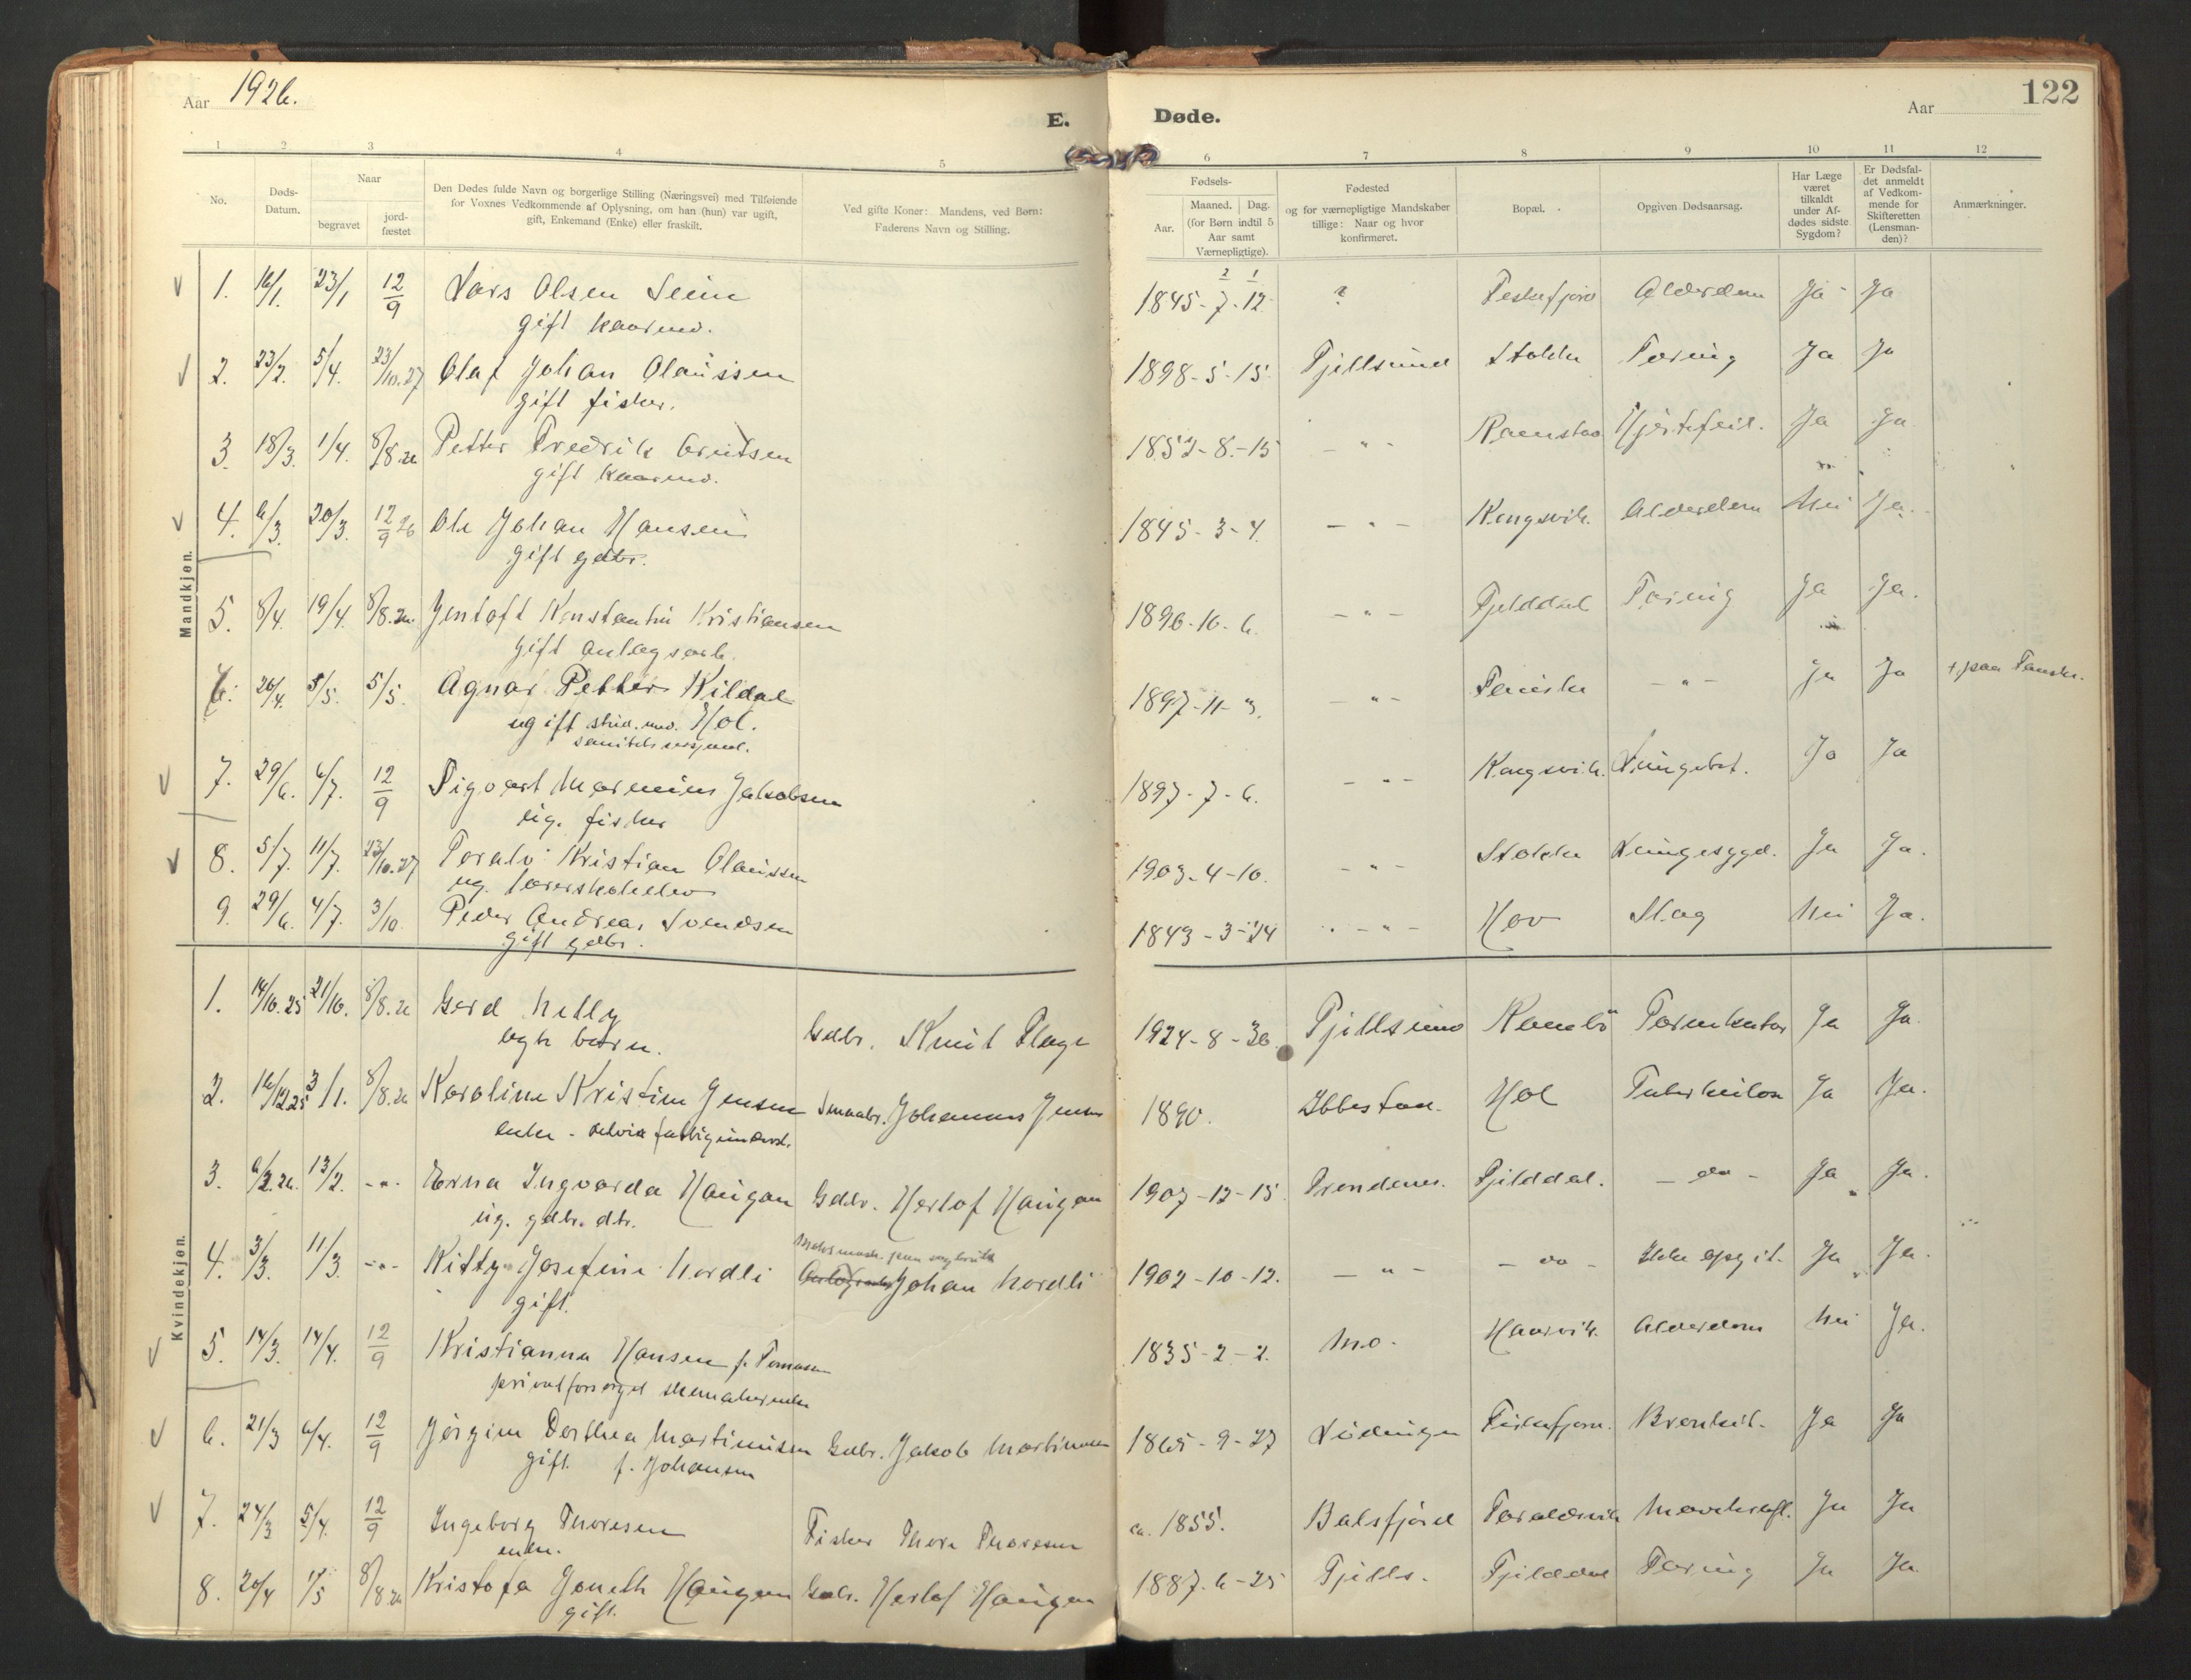 Aar 1926.
E. Døde.
Aar
122
1 2 3 4 5 6 7 8 9 10 11 12
No.
Døds-
Datum.
Naar
begravet
jord-
fæstet
Den Dødes fulde Navn og borgerlige Stilling (Næringsvei) med Tilføiende
for Voxnes Vedkommende af Oplysning, om han (hun) var ugift,
gift, Enkemand (Enke) eller fraskilt.
Ved gifte Koner: Mandens, ved Børn:
Faderens Navn og Stilling.
Fødsels-
Aar.
Maaned. Dag.
(for Børn indtil 5
Aar samt
Værnepligtige).
Fødested
og for værnepligtige Mandskaber
tillige: Naar og hvor
konfirmeret.
Bopæl.
Opgiven Dødsaarsag.
Har Læge
været
tilkaldt
under Af-
dødes sidste
Sygdom?
Er Dødsfal-
det anmeldt
af Vedkom-
mende for
Skifteretten
(Lensman-
den)?
Anmærkninger.
Mandkjøn.
2 1
1. 16/1. 23/1 12/9 Lars Olsen 1845-7-12 ? Alderdom Ja Ja
gift kaarmd.
2. 23/2. 5/4. 23/10.27 Olaf Johan Olaussen 1898-5-15 Fjellsund Stokke Tæring Ja Ja
gift fisker.
3. 18/3. 1/4. 8/8.26 Petter Fredrik Arntsen 1852-8-15 - " - Ramstad Hjertefeil. Ja Ja
gift kaarmd.
4. 6/3. 20/3. 12/9 26 Ole Johan Hansen 1845-3-4. - " - Kongsvik. Alderdom Nei Ja.
gift gdbr.
5. 8/4. 19/4. 8/8.26. Jentoft Konstantin Kristiansen 1896-10-6. - " - Fjelddal Tæring Ja Ja.
gift anlægsarb.
6. 26/4. 5/5. 5/5. Agnar Petter Kildal 1897-11-3. - " - - " - Ja Ja + paa
ugift stud. med. Hol.
7. 29/6. 6/7. 12/9 Sigvart Jakobsen 1897-7-6. - " - Kongsvik. Lungebet. Ja Ja
ug. fisker
8. 5/7. 11/7. 23/10.27 Toralv Kristian Olaussen 1903-4-10. - " - Stokke Lungesygd. Ja Ja.
ug. lærerskoleelev
9. 29/6. 4/7. 3/10 Peder Andreas Svendsen 1843-3-24 - " - Hov Slag Nei Ja.
gift gdbr.
Kvindekjøn.
1. 14/10.25 21/10. 8/8.26 Gerd Nelly Gdbr. Knut 1924-8-30. Fjellsund Ja Ja
egte barn.
2. 16/12 25 3/1. 8/8.26 Karoline Kristine Jensen Smaabr. Johannes Jensen 1890. Ibbestad. Hol Tuberkulose Ja Ja.
enke -
3. 6/2.26. 13/2. - " - Erna Ingvarda Haugan Gdbr. Herlof Haugan 1907-12-15 Trondenes. Fjelddal. - do - Ja Ja.
ug. gdbr. dtr.
4. 3/3. 11/3. - " - Kitty Josefine Nordli Johan Nordli 1902-10-12. - " - - do - Ikke opgit. Ja Ja.
gift.
5. 14/3. 14/4. 12/9 Kristianna Hansen f. 1835-2-2. Mo. Haarvik. Alderdom Nei Ja.
privatforsørget
6. 21/3 6/4. 12/9 Jørgine Dorthea Martinussen Gdbr. Jakob Martinussen 1865-9-27 Lødingen Ja Ja
gift. f. Johansen
7. 24/3 5/4. 12/9 Ingeborg Thoresen Fisker Thore Thoresen ca. 1855. Balsfjord Ja Ja
enke.
8. 20/4 1/5 8/8.26 Kristofa Haugan Gdbr. Herlof Haugan 1887-6-25 Fjells. Fjelddal Tæring Ja Ja
gift.